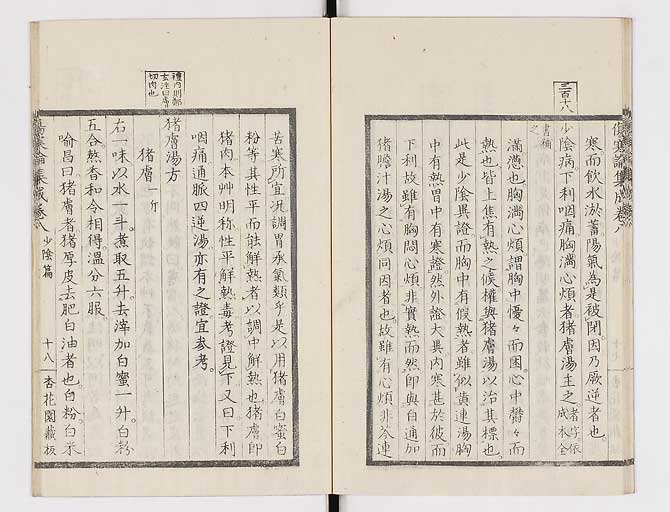 三百十八
傷寒論集成卷
寒而飲水淤蓄陽氣為是被閉因乃厥逆者也
少陰病下利咽痛胸滿心煩者猪膚湯主之者字依成本全
書補之
滿懣也胸滿心煩謂胸中懮々而困心中鬱々而
熱也皆上焦有熱之候權與猪膚湯以治其標也
此是少陰異證而胸中有假熱者雖似黃連湯胸
中有熱胃中有寒證然外證大異內寒甚於彼而
下利故雖有胸悶心煩非實熱而然即與白通加
猪膽汁湯之心煩同因者也故雖有心煩非芩連
苦寒所宜况調胃承氣類乎是以用猪膚白蜜白
粉等其性平而能解熱者以調中解熱也猪膚即
猪肉本艸明称性平解熱毒考證見下又曰下利
咽痛通脈四逆湯亦有之證宜参考
禮內則鄭
玄注曰膚
切肉也
猪膚湯方
猪膚一斤
右一味以水一斗煮取五升去滓加白蜜一升白粉
五合熬香和令相得溫分六服
喻昌曰猪膚者猪厚皮去肥白油者也白粉白米
傷寒論集成卷八 少陰篇 十八 杏花園藏板